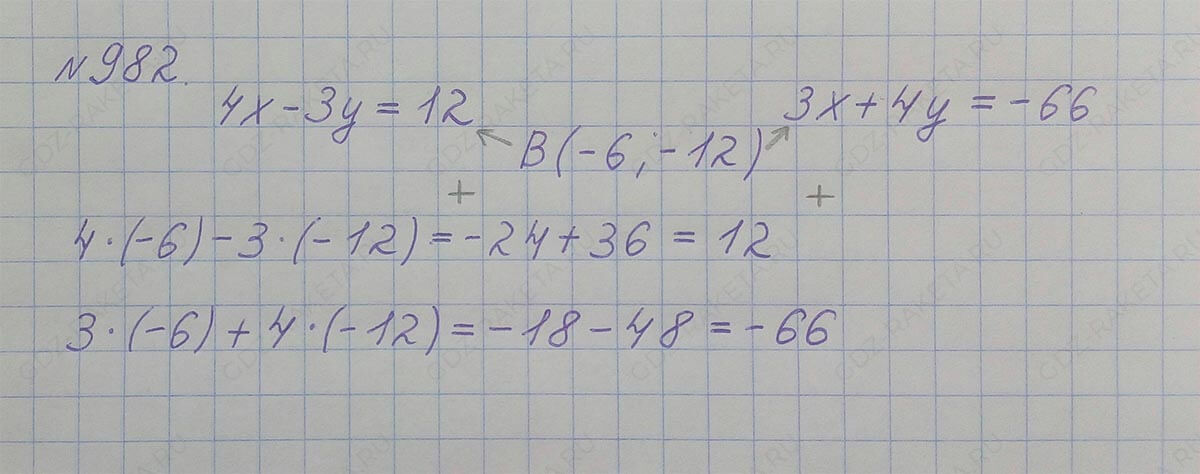 №982.
4x - 3y = 12 3x + 4y = -66
B(-6; -12)
+ +
4·(-6) - 3·(-12) = -24 + 36 = 12
3·(-6) + 4·(-12) = -18 - 48 = -66
GDZ-RAKETA.RU